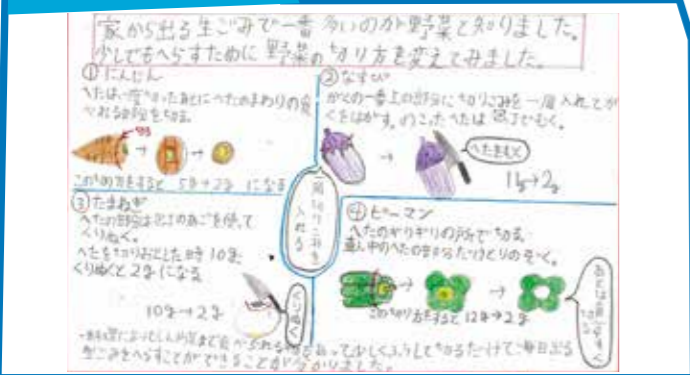 家から出る生ごみで一番多いのが野菜と知りました。
少しでもへらすために野菜の切り方を変えてみました。
①にんじん
へたは、一度切ったあとにへたのまわりの食
べれる部分を切る。
切る
この切り方をすると 5g→2g になる
②なすび
がくの一番上の部分に切りこみを一周入れてが
くをはがす。のこったへたは包丁でむく。
へたをむく
11g→2g
一周切りこみを入れる
③たまねぎ
へたの部分は包丁のあごを使って
くりぬく。
へたを切りおとした時 10g
くりぬくと 2gになる
10g→2g
くりぬく
④ピーマン
へたのギリギリの所で切る。
中のへたの部分だけとりのぞく。
この切り方をすると 12g→2g
少しくふうして切るだけで毎日出る
生ごみをへらすことができることが分かりました。